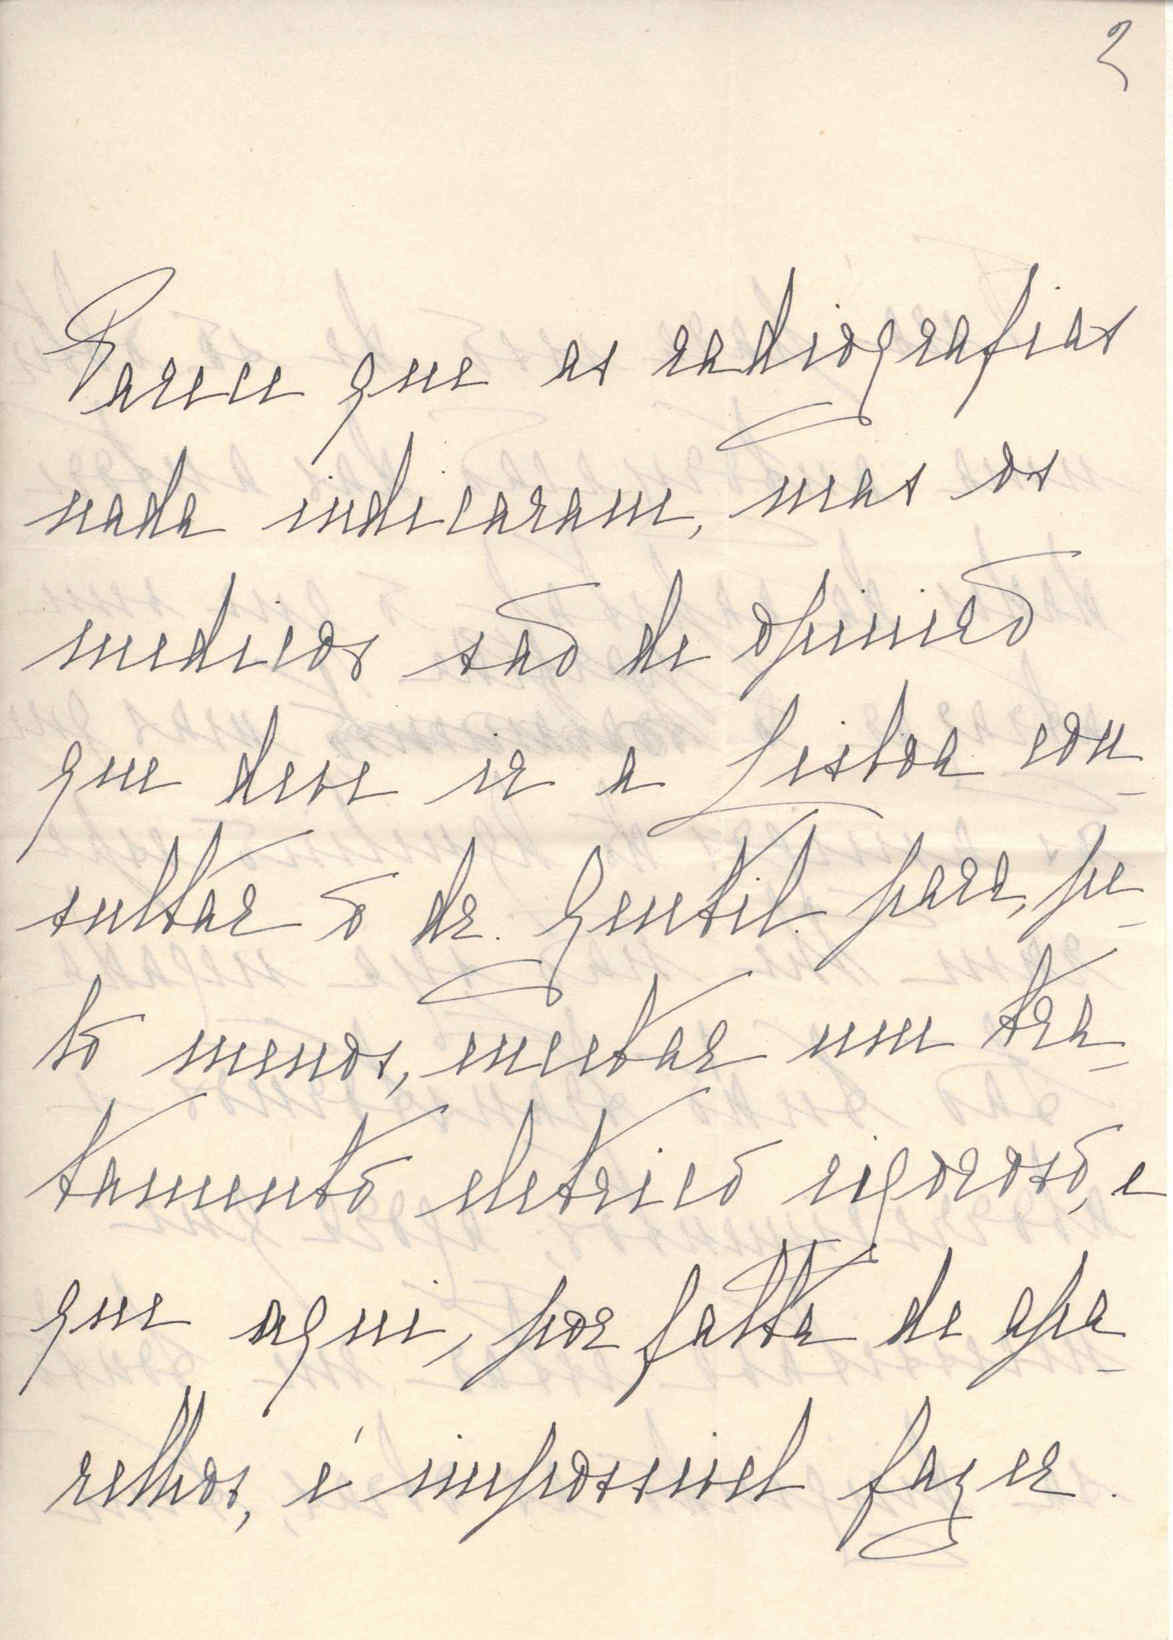 2
Parece que as radiografias
nada indicaram, mas os
medicos são de opinião
que deve ir a Lisboa con-
sultar o dr. Gentil para, pe-
lo menos, encetar um tra-
tamento eletrico rigoroso, e
que aqui, por falta de apa-
relhos, é impossivel fazer.